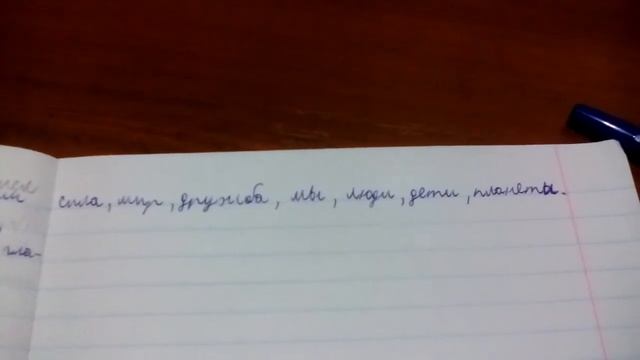 сила, мир, дружба, мы, люди, дети, планеты.